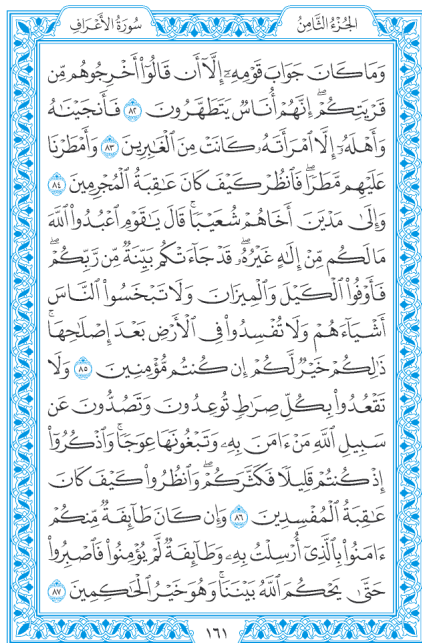 الجُزْءُ الثَّامِنُ
سُورَةُ الأَعْرَافِ
وَمَا كَانَ جَوَابَ قَوْمِهِۦٓ إِلَّآ أَن قَالُوٓا۟ أَخْرِجُوهُم مِّن
قَرْيَتِكُمْ ۖ إِنَّهُمْ أُنَاسٌ يَتَطَهَّرُونَ ٨٢ فَأَنجَيْنَـٰهُ
وَأَهْلَهُۥٓ إِلَّا ٱمْرَأَتَهُۥ كَانَتْ مِنَ ٱلْغَـٰبِرِينَ ٨٣ وَأَمْطَرْنَا
عَلَيْهِم مَّطَرًا ۖ فَٱنظُرْ كَيْفَ كَانَ عَـٰقِبَةُ ٱلْمُجْرِمِينَ ٨٤
وَإِلَىٰ مَدْيَنَ أَخَاهُمْ شُعَيْبًا ۗ قَالَ يَـٰقَوْمِ ٱعْبُدُوا۟ ٱللَّهَ
مَا لَكُم مِّنْ إِلَـٰهٍ غَيْرُهُۥ ۖ قَدْ جَآءَتْكُم بَيِّنَةٌ مِّن رَّبِّكُمْ ۖ
فَأَوْفُوا۟ ٱلْكَيْلَ وَٱلْمِيزَانَ وَلَا تَبْخَسُوا۟ ٱلنَّاسَ
أَشْيَآءَهُمْ وَلَا تُفْسِدُوا۟ فِى ٱلْأَرْضِ بَعْدَ إِصْلَـٰحِهَا ۚ
ذَٰلِكُمْ خَيْرٌ لَّكُمْ إِن كُنتُم مُّؤْمِنِينَ ٨٥ وَلَا
تَقْعُدُوا۟ بِكُلِّ صِرَٰطٍ تُوعِدُونَ وَتَصُدُّونَ عَن
سَبِيلِ ٱللَّهِ مَنْ ءَامَنَ بِهِۦ وَتَبْغُونَهَا عِوَجًا ۚ وَٱذْكُرُوٓا۟
إِذْ كُنتُمْ قَلِيلًا فَكَثَّرَكُمْ ۖ وَٱنظُرُوا۟ كَيْفَ كَانَ
عَـٰقِبَةُ ٱلْمُفْسِدِينَ ٨٦ وَإِن كَانَ طَآئِفَةٌ مِّنكُمْ
ءَامَنُوا۟ بِٱلَّذِىٓ أُرْسِلْتُ بِهِۦ وَطَآئِفَةٌ لَّمْ يُؤْمِنُوا۟ فَٱصْبِرُوا۟
حَتَّىٰ يَحْكُمَ ٱللَّهُ بَيْنَنَا ۚ وَهُوَ خَيْرُ ٱلْحَـٰكِمِينَ ٨٧
١٦١